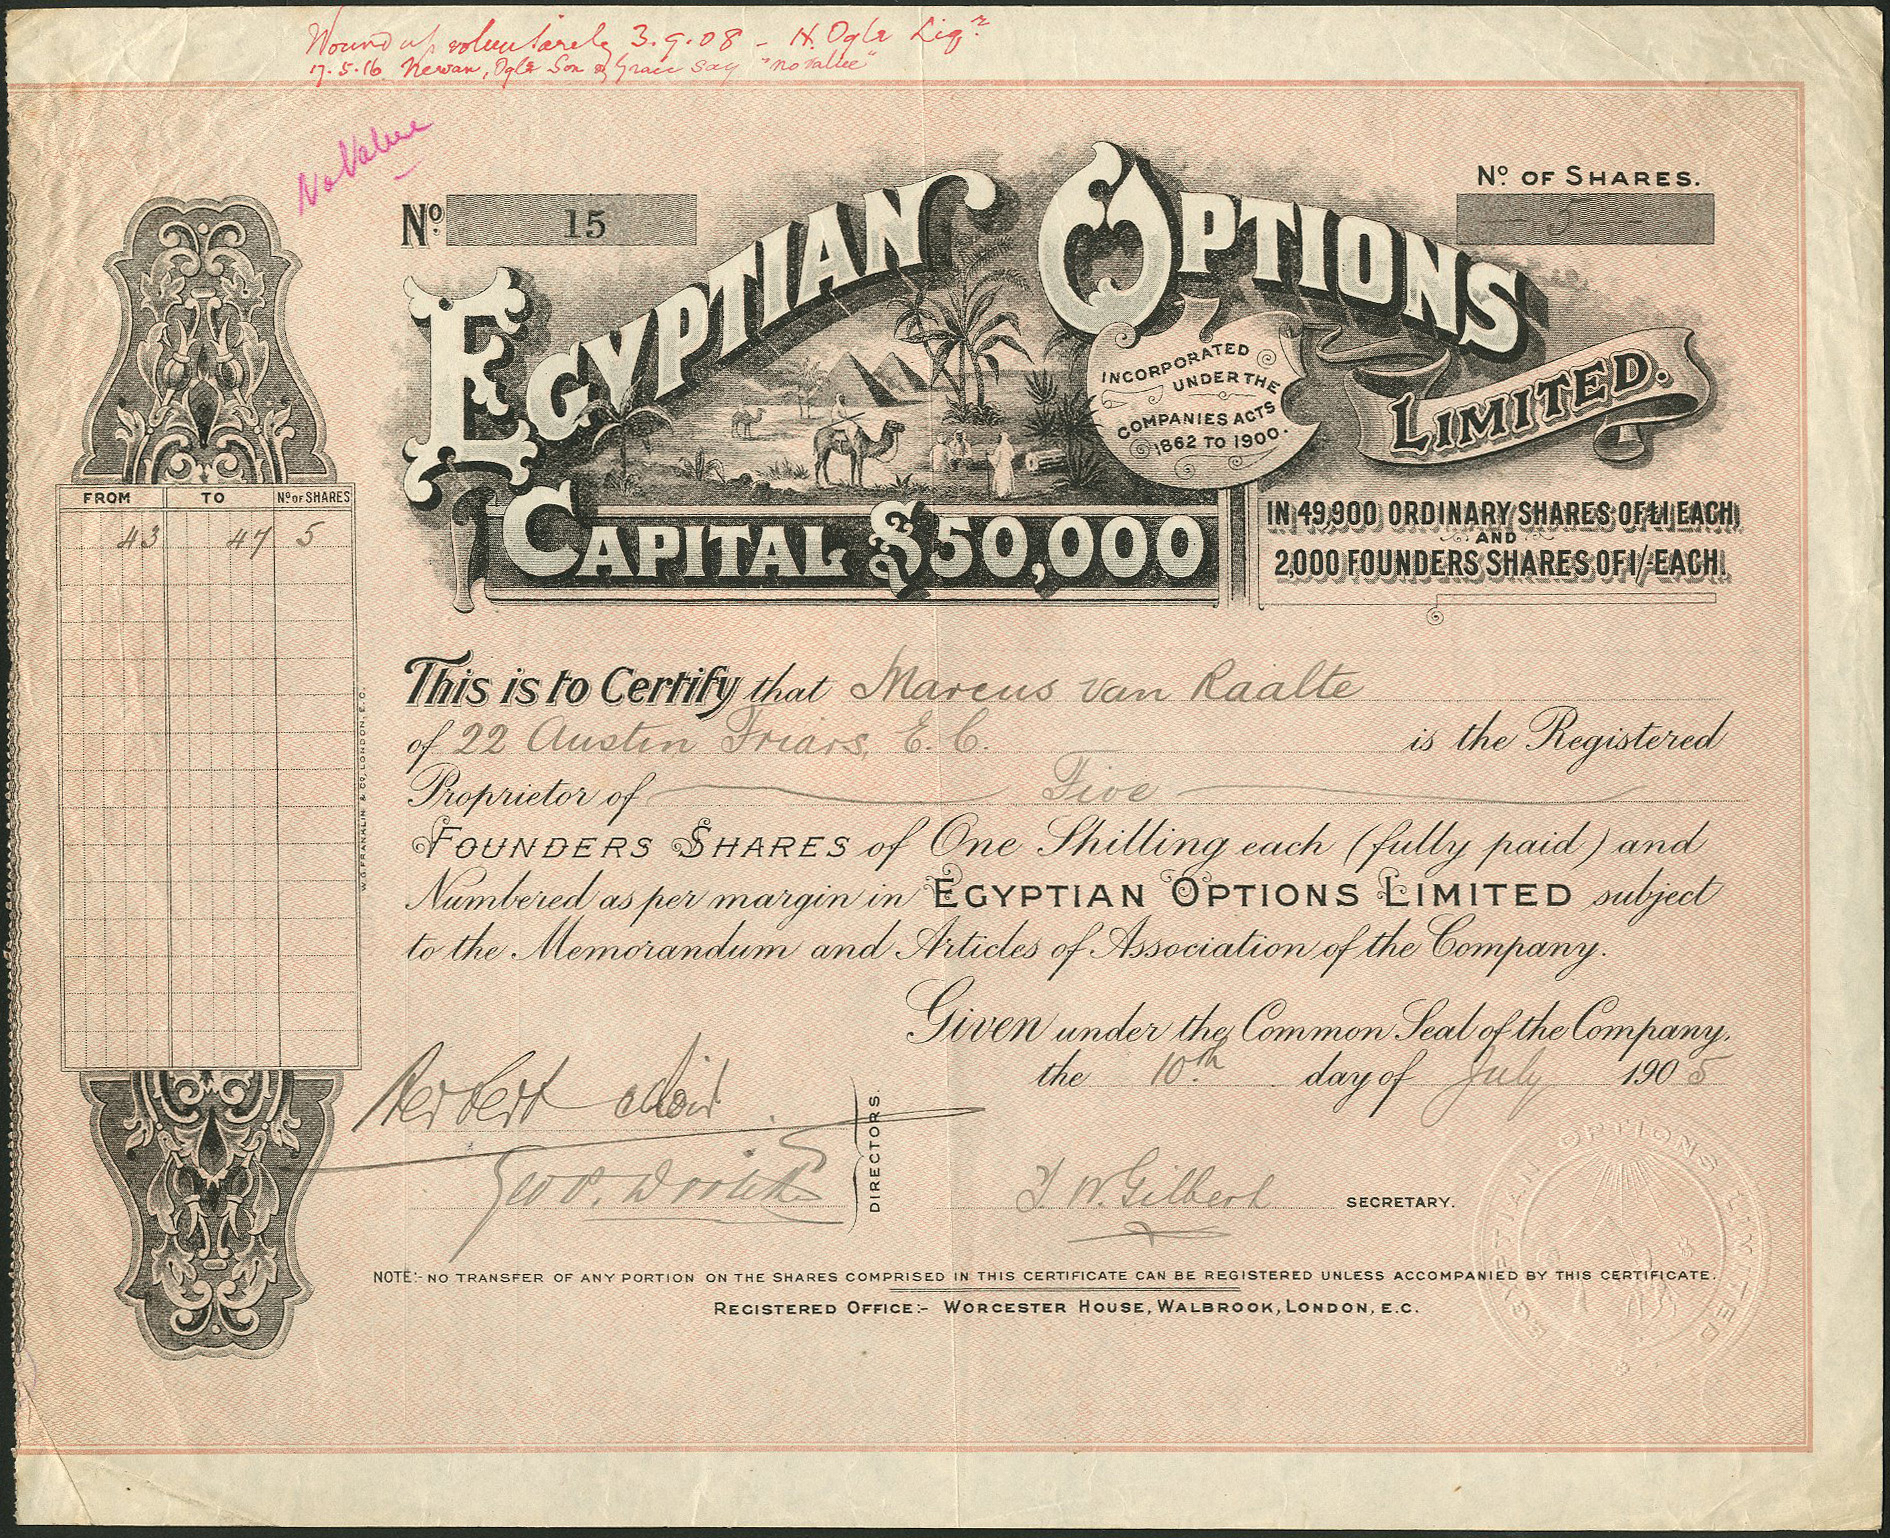 Wound up voluntarily 3.9.08 - H. Ogle Liqr
17.5.16 Ogle Son & say "no value"
No Value
No. 15
No. OF SHARES.
- 5 -
EGYPTIAN OPTIONS
LIMITED.
INCORPORATED
UNDER THE
COMPANIES ACTS
1862 TO 1900.
CAPITAL £50,000
IN 49,900 ORDINARY SHARES OF £1 EACH
AND
2,000 FOUNDERS SHARES OF 1/- EACH.
FROM TO No. OF SHARES
43 47 5
This is to Certify that Marcus van Raalte
of 22 Austin Friars, E.C. is the Registered
Proprietor of Five
FOUNDERS SHARES of One Shilling each (fully paid) and
Numbered as per margin in EGYPTIAN OPTIONS LIMITED subject
to the Memorandum and Articles of Association of the Company.
Given under the Common Seal of the Company,
the 10th day of July 1905
Herbert
DIRECTORS.
Geo P.
T. W. Gilbert SECRETARY.
EGYPTIAN OPTIONS LIMITED
NOTE:- NO TRANSFER OF ANY PORTION ON THE SHARES COMPRISED IN THIS CERTIFICATE CAN BE REGISTERED UNLESS ACCOMPANIED BY THIS CERTIFICATE.
REGISTERED OFFICE:- WORCESTER HOUSE, WALBROOK, LONDON, E.C.
W.G. FRANKLIN & CO, LONDON, E.C.